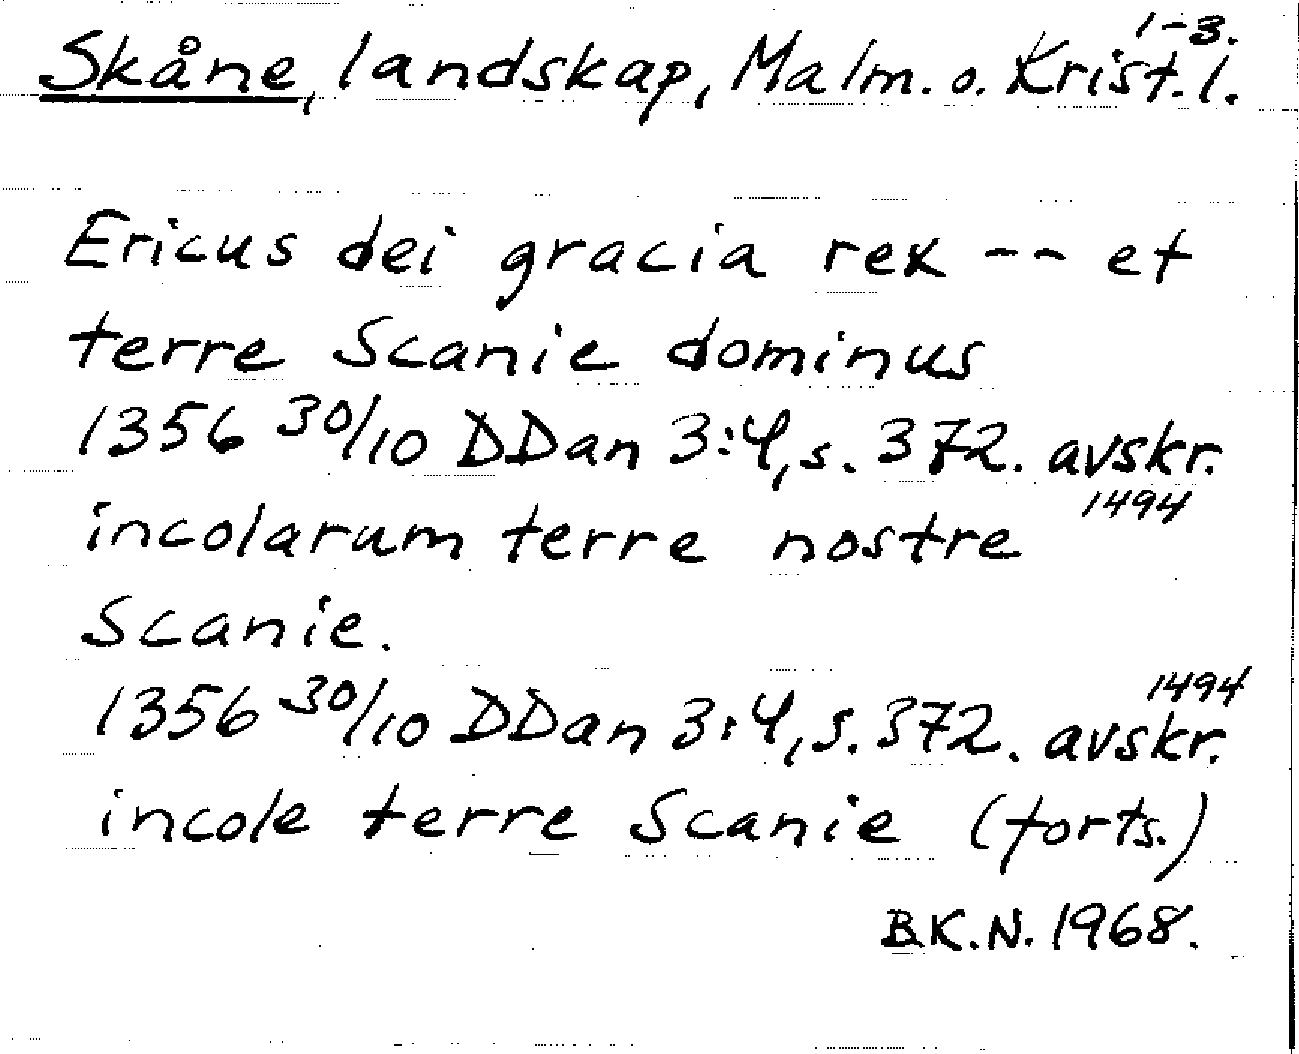 Skåne, landskap, Malm. o. Krist. l. 1-3.
Ericus dei gracia rex -- et
terre Scanie dominus
1356 30/10 DDan 3:4, s. 372. avskr. 1494
incolarum terre nostre
Scanie.
1356 30/10 DDan 3:4, s. 372. avskr. 1494
incole terre Scanie (forts.)
B.K.N. 1968.